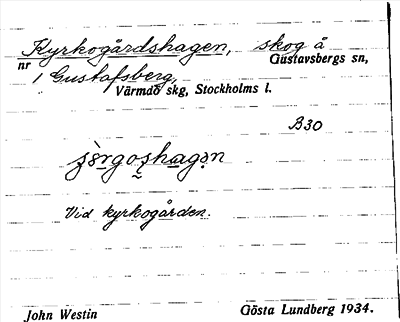 Kyrkogårdshagen, skog å
nr 1 Gustafsberg, Gustavsbergs sn,
Värmdö skg, Stockholms l.
B30
Vid kyrkogården.
John Westin Gösta Lundberg 1934.